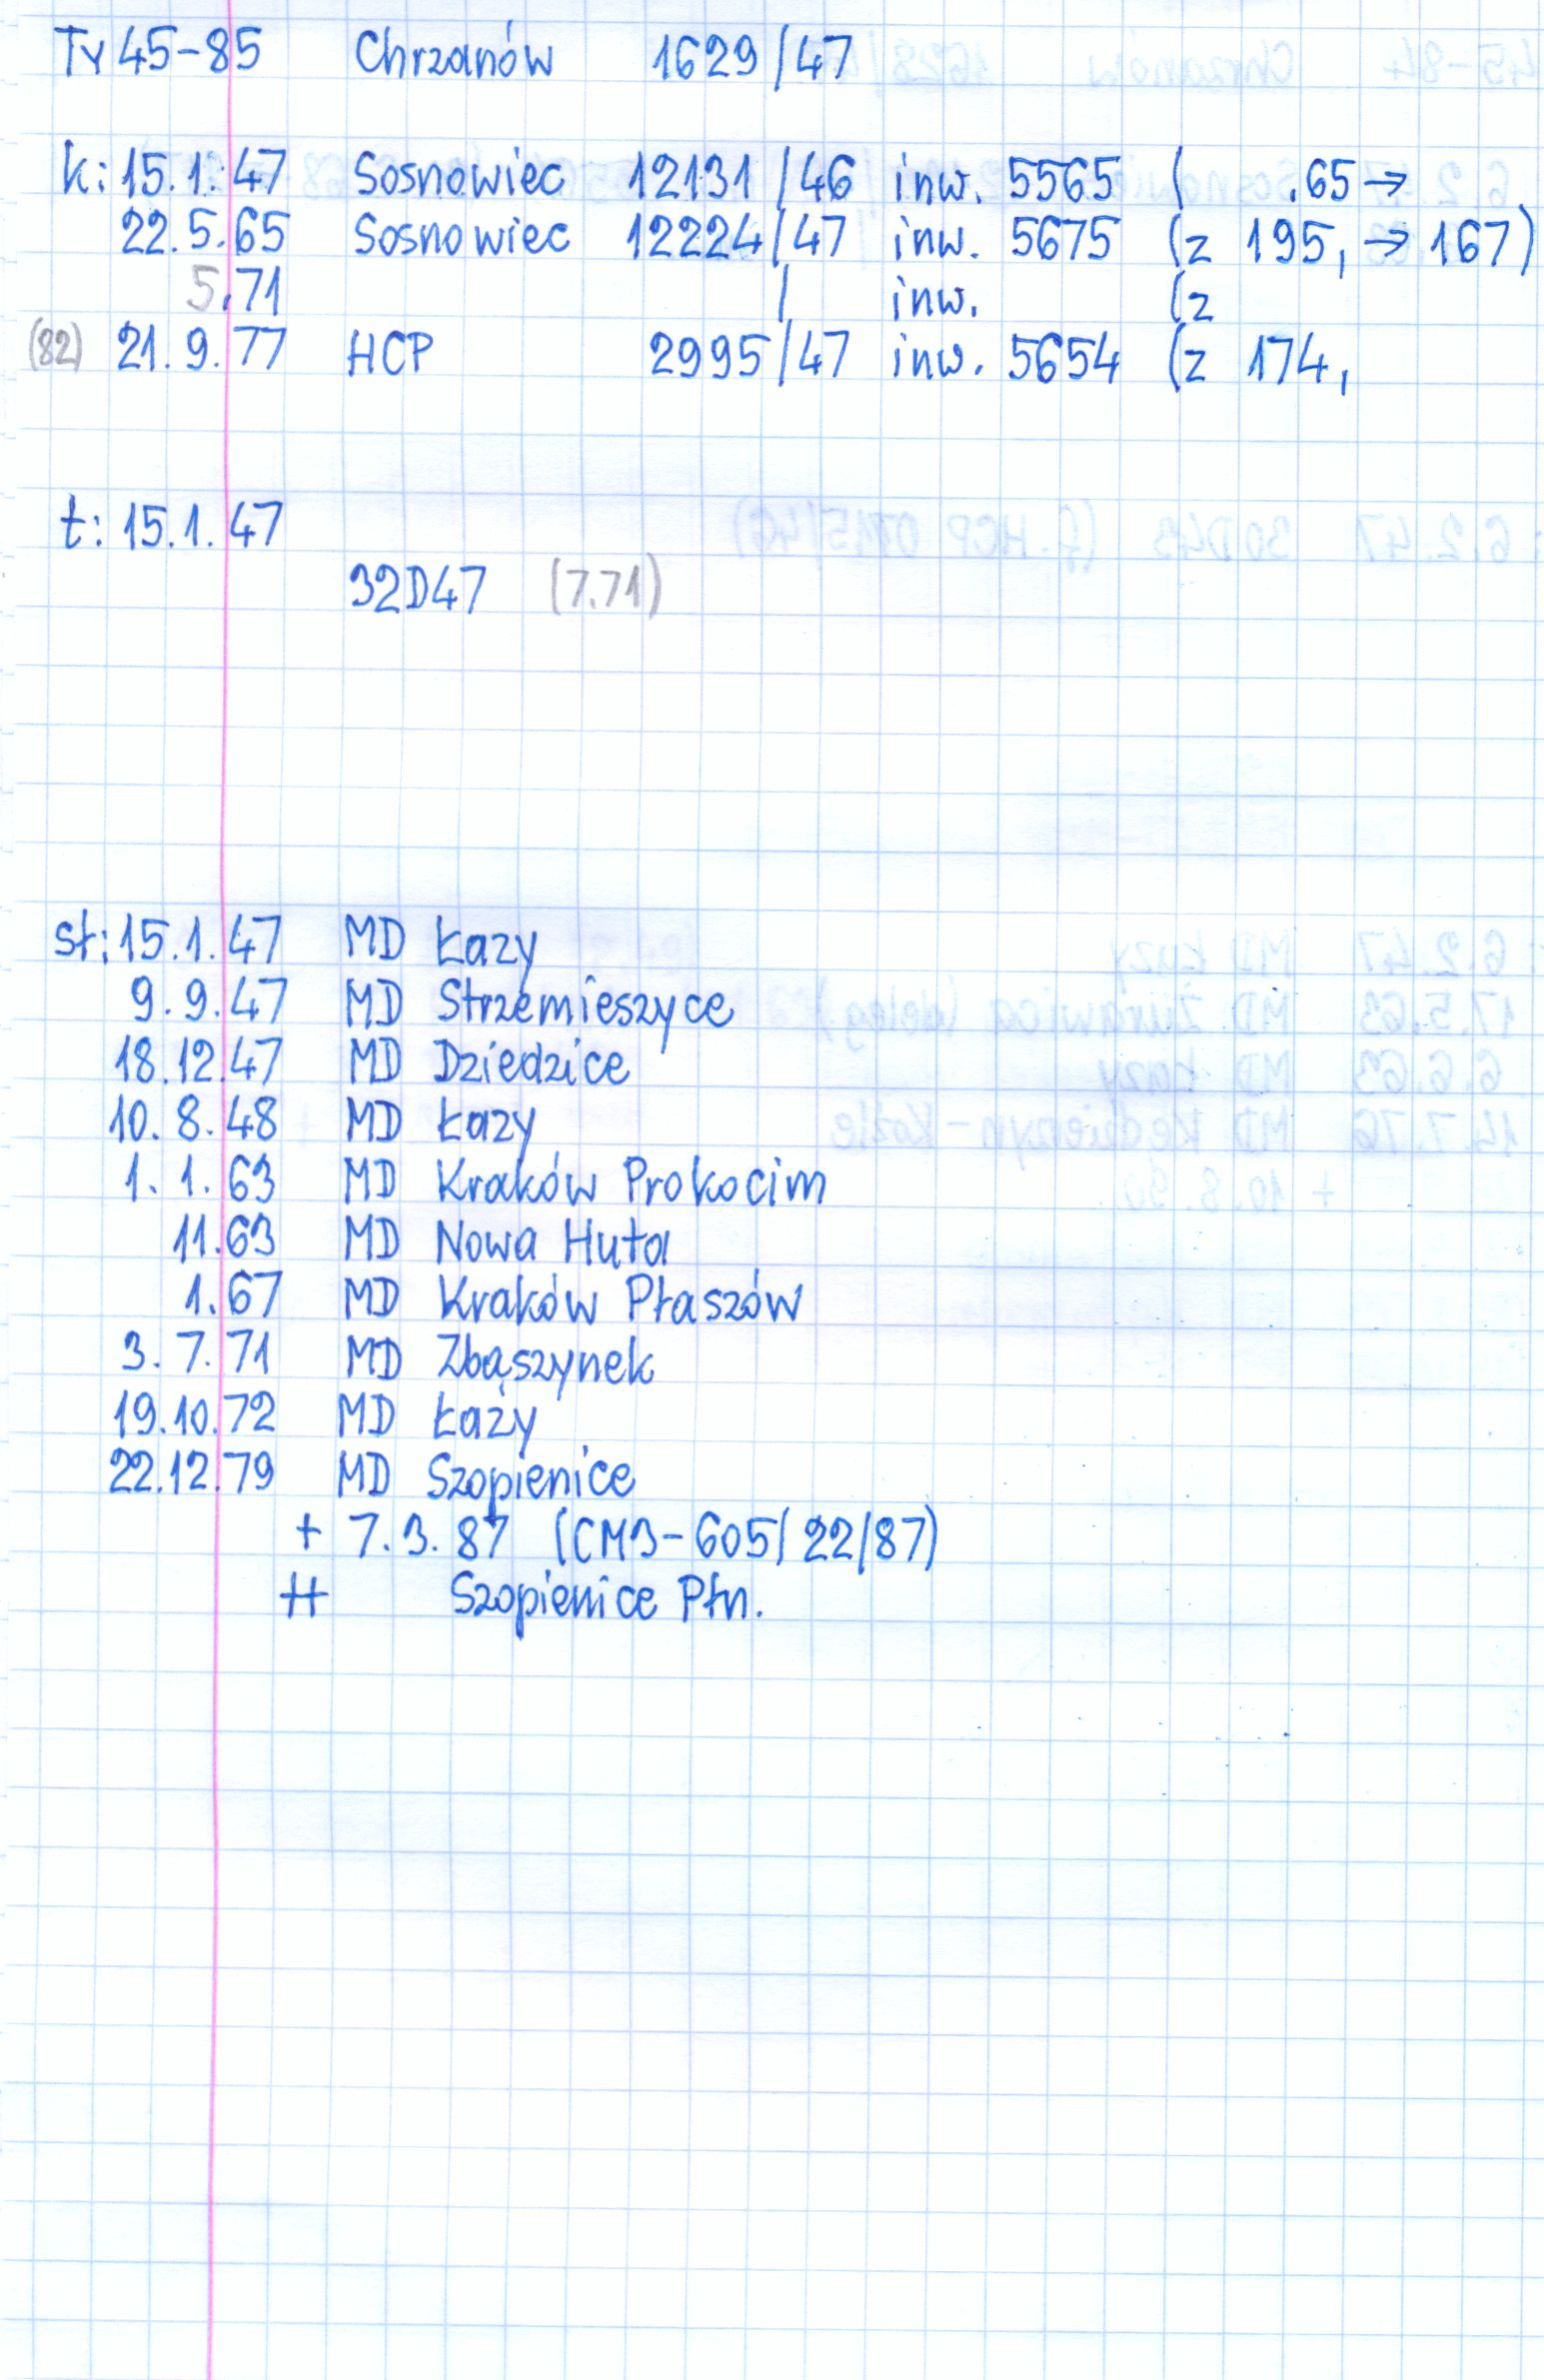 Ty 45-85 Chrzanów 1629/47
k: 15.1.47 Sosnowiec 12131/46 inw. 5565 ( .65→
22.5.65 Sosnowiec 12224/47 inw. 5675 (z 195, → 167)
5.71 / inw. (z
(82) 21.9.77 HCP 2995/47 inw. 5654 (z 174,
t: 15.1.47
32D47 (7.71)
st: 15.1.47 MD Łazy
9.9.47 MD Strzemieszyce
18.12.47 MD Dziedzice
10.8.48 MD Łazy
1.1.63 MD Kraków Prokocim
11.63 MD Nowa Huta
1.67 MD Kraków Płaszów
3.7.71 MD Zbąszynek
19.10.72 MD Łazy
22.12.79 MD Szopienice
+ 7.3.87 (CM3-605/22/87)
++ Szopienice Płn.